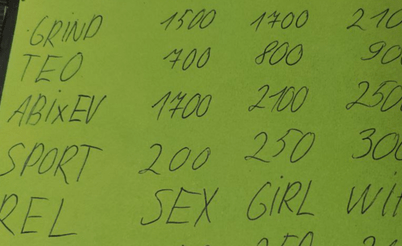 GRIND 1500 1700
TEO 700 800
ABixEV 1700 2100
SPORT 200 250
REL SEX GiRL